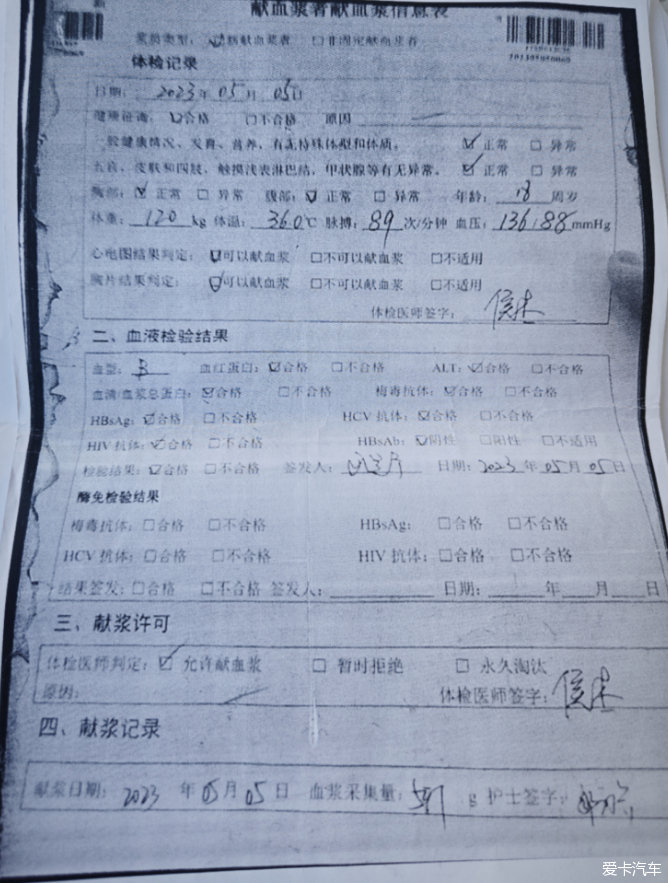 献血浆者献血浆信息表
浆员类型：☑固定献血浆者 □非固定献血浆者
体检记录
日期：2023年05月05日
健康征询：☑合格 □不合格 原因
一般健康情况、发育、营养，有无特殊体型和体质。 ☑正常 □异常
五官，皮肤和四肢，触摸浅表淋巴结，甲状腺等有无异常。 ☑正常 □异常
胸部：☑正常 □异常 腹部：☑正常 □异常 年龄：18周岁
体重：120kg 体温：36.0℃ 脉搏：89次/分钟 血压：136/88mmHg
心电图结果判定：☑可以献血浆 □不可以献血浆 □不适用
胸片结果判定：☑可以献血浆 □不可以献血浆 □不适用
体检医师签字：
二、血液检验结果
血型：B 血红蛋白：☑合格 □不合格 ALT：☑合格 □不合格
血清/血浆总蛋白：☑合格 □不合格 梅毒抗体：☑合格 □不合格
HBsAg：☑合格 □不合格 HCV抗体：☑合格 □不合格
HIV抗体：☑合格 □不合格 HBsAb：☑阴性 □阳性 □不适用
检验结果：☑合格 □不合格 签发人： 日期：2023年05月05日
酶免检验结果
梅毒抗体：□合格 □不合格 HBsAg：□合格 □不合格
HCV抗体：□合格 □不合格 HIV抗体：□合格 □不合格
结果签发：□合格 □不合格 签发人： 日期： 年 月 日
三、献浆许可
体检医师判定：☑允许献血浆 □暂时拒绝 □永久淘汰
原因： 体检医师签字：
四、献浆记录
献浆日期：2023年05月05日 血浆采集量： g 护士签字：
爱卡汽车